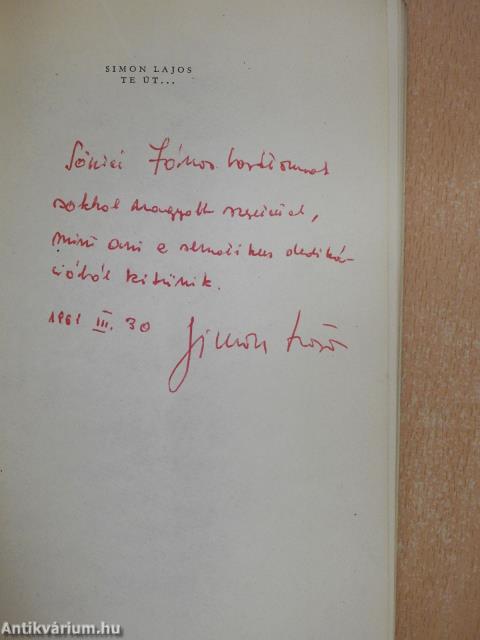 SIMON LAJOS
TE ÚT...
János barátomnak
sokkal nagyobb szeretettel,
mint ami e sematikus dediká-
cióból kitűnik.
1961 III. 30
Simon Lajos
Antikvárium.hu